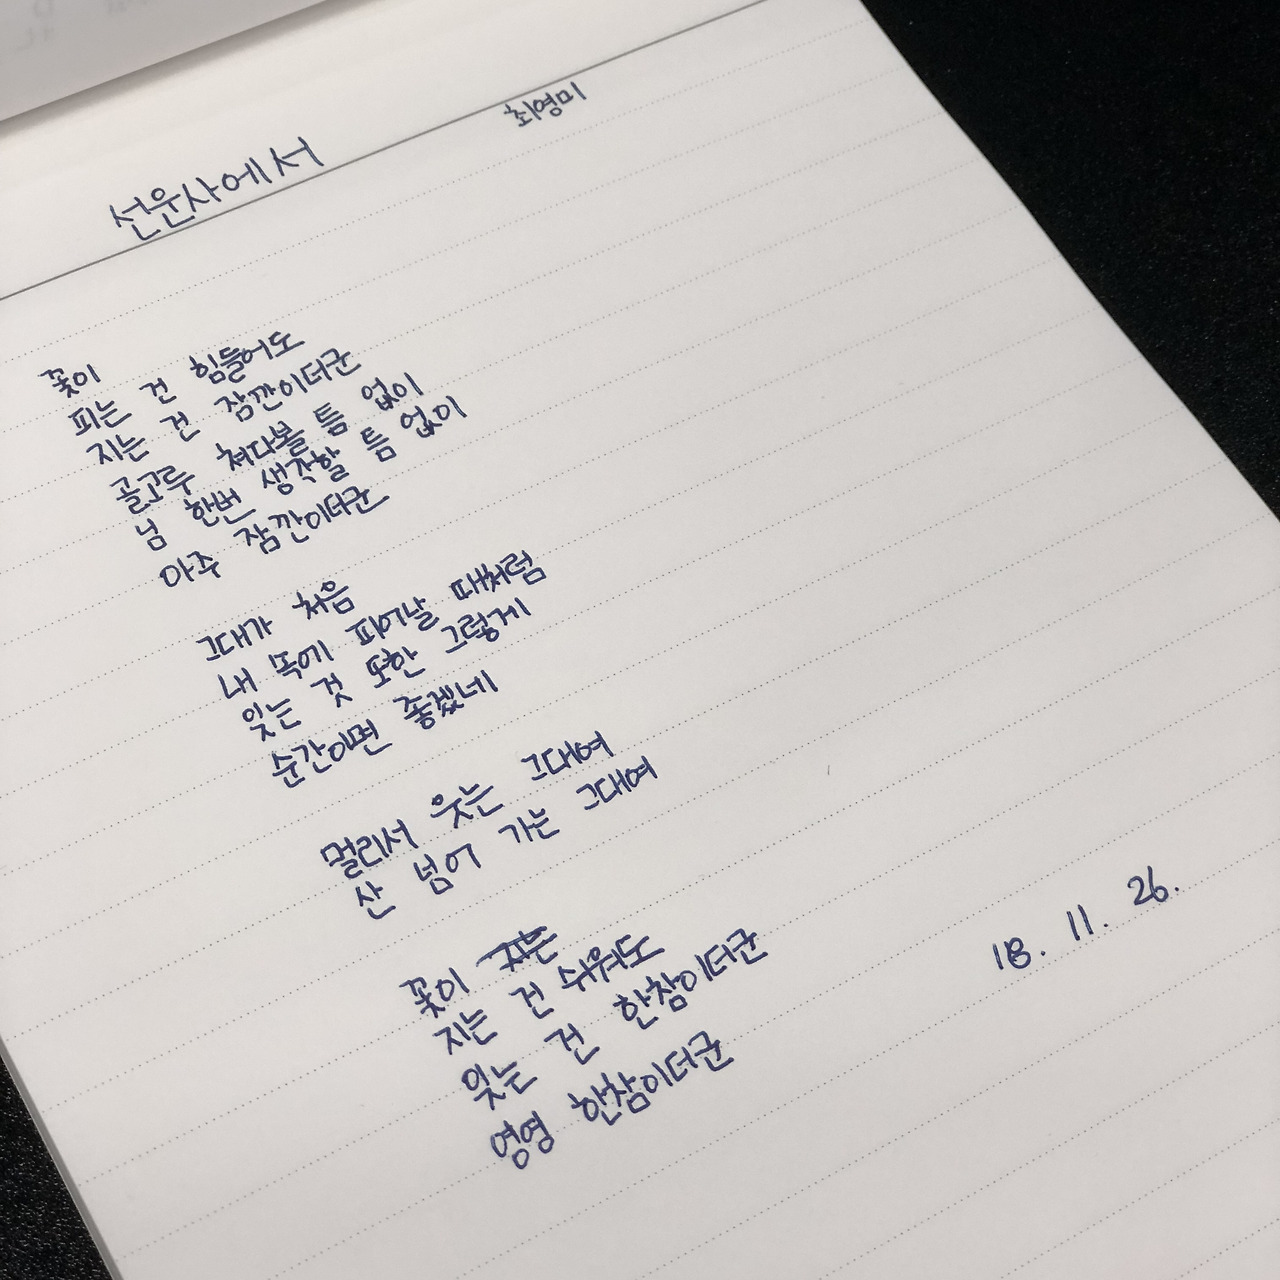 선운사에서
최영미
꽃이
피는 건 힘들어도
지는 건 잠깐이더군
골고루 쳐다볼 틈 없이
님 한번 생각할 틈 없이
아주 잠깐이더군
그대가 처음
내 속에 피어날 때처럼
잊는 것 또한 그렇게
순간이면 좋겠네
멀리서 웃는 그대여
산 넘어 가는 그대여
꽃이
지는 건 쉬워도
잊는 건 한참이더군
영영 한참이더군
18. 11. 26.